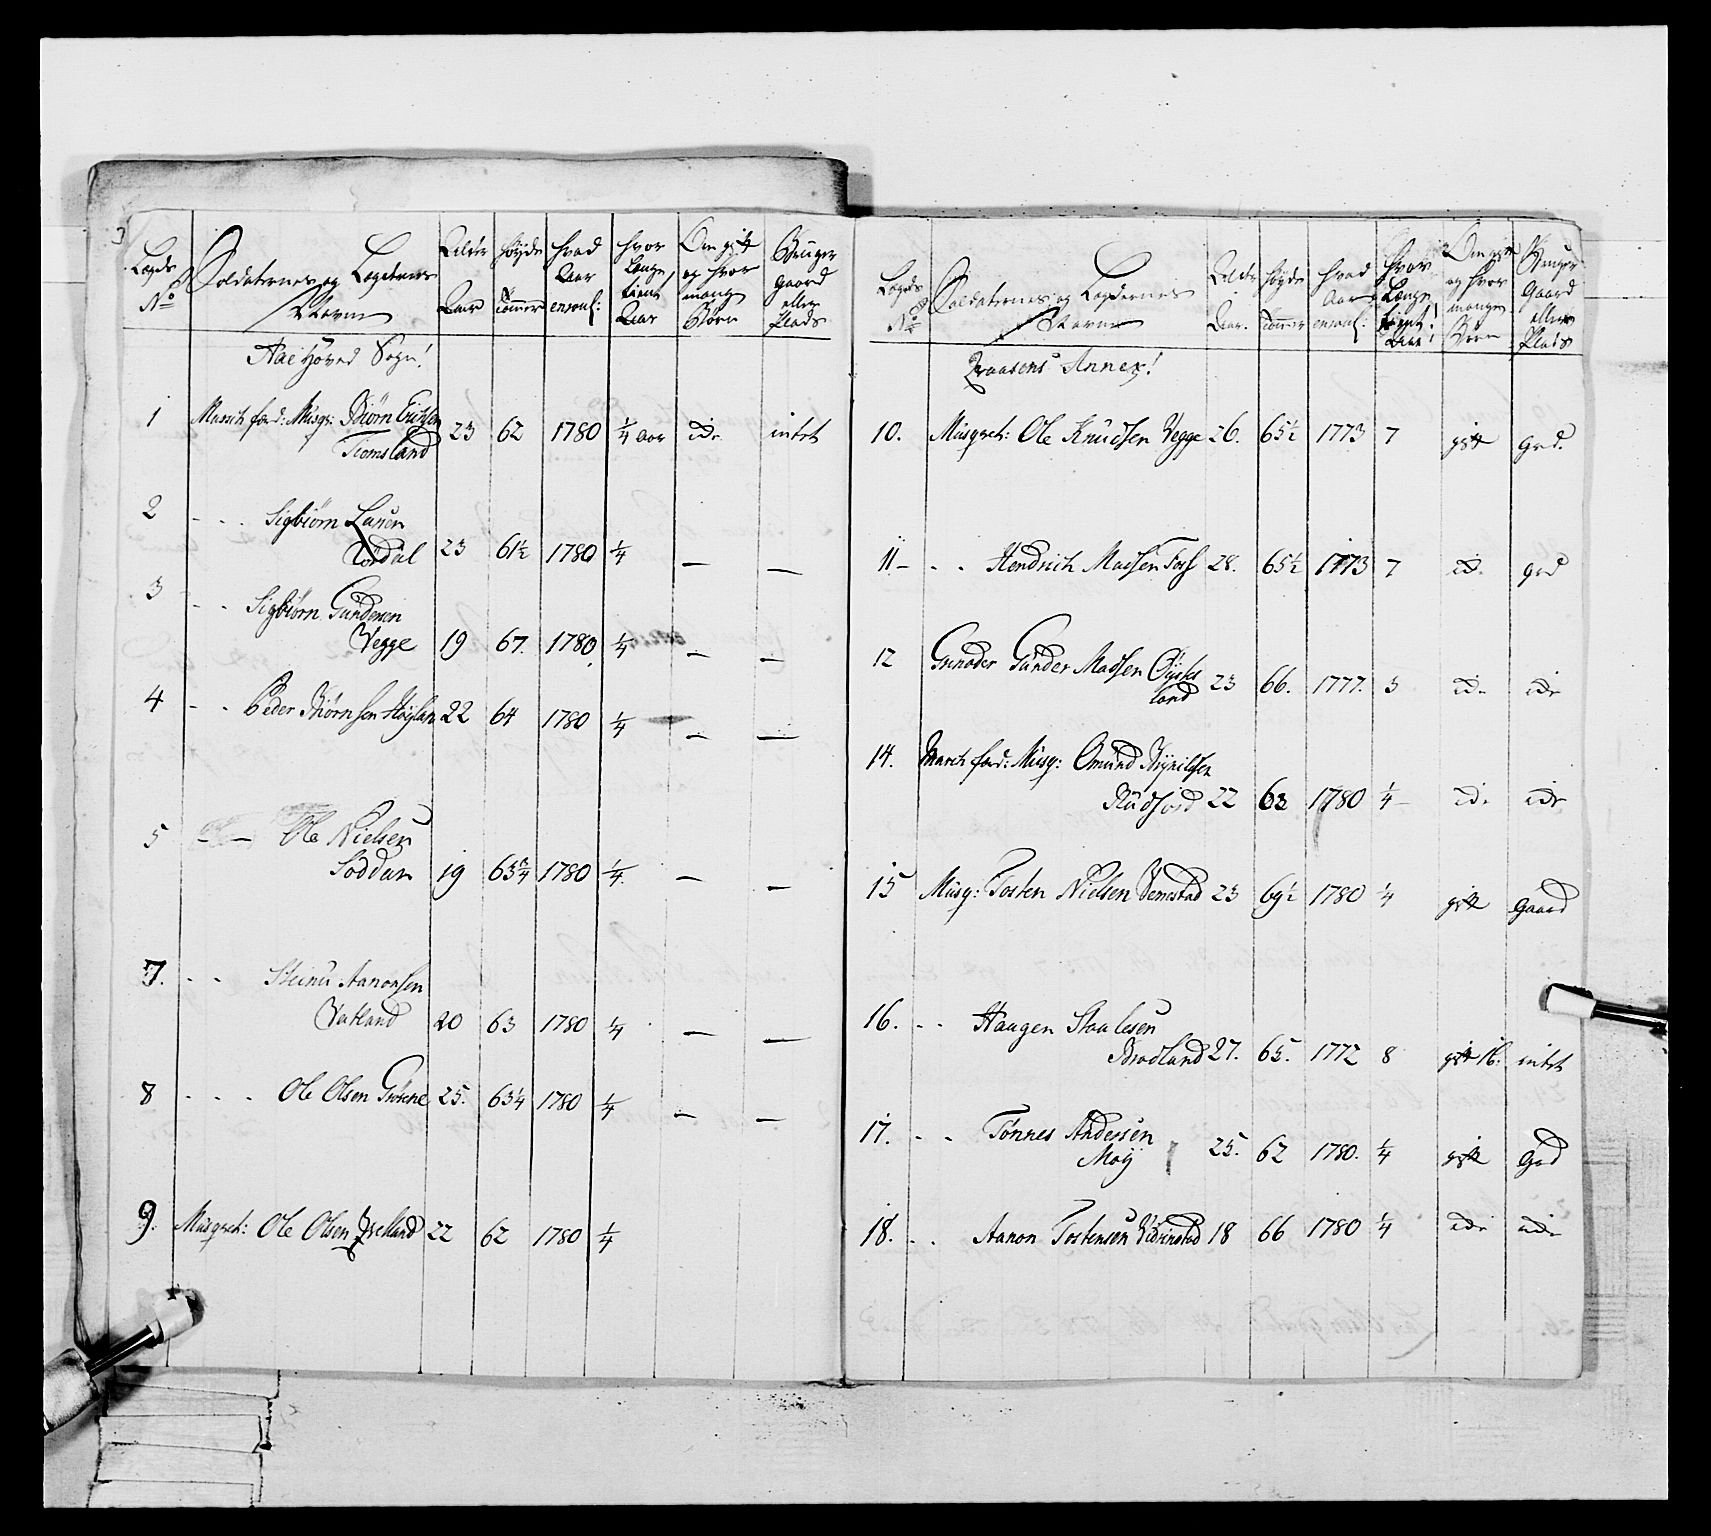 3
Lægds No
Soldaternes og Lægdernes Navne
Alder Aar
Høyde Tommer
hvad Aar enroul:
hvor Længe tient Aar
Om gift og hvor mange Børn
Bruger gaard eller Plads
Sogn!
1 March ferd: Musqr: Biørn Erichsen 23 62 1780 1/4 aar ide intet
Tiomsland
2 - - - Sigbiørn Larsen
23 61½ 1780 1/4 — —
3 - - Sigbiørn Gundersen
Vegge 19 67. 1780 1/4 — —
4 - - Peder Biørnsen Høyland 22 64 1780 1/4 — —
5 — — Ole Nielsen
Soddan 19 63¾ 1780 1/4 — —
7. - - Aanonsen
Vatland 20 63 1780 1/4 — —
8 - - - Ole Olsen 25. 63¼ 1780 1/4 — —
9. Musqret: Ole Olsen 22 62 1780 1/4
Lægds No
Soldaternes og Lægdernes Navne
Alder Aar.
høyde Tommer
hvad Aar enroul:
hvor Længe tient Aar!
Om gift og hvor mange Børn
Bruger Gaard eller Plads
Qvaasens Annex!
10. Musqret: Ole Knudsen Vegge 26. 65½ 1773 7 gift Grd.
11 - - - Hendrich Madsen Foss 28. 65½ 1773 7 id. grd
12 Grenader Gunder Madsen Øysæ
land 23 66. 1777. 3 ide ide
14. March ferd: Musq: Omund Brynildsen
Rudjord 22 63 1780 1/4 — ide ide
15 Musq: Tosten Nielsen Vemestad 23 69½ 1780 1/4 gift gaard
16. - - Haagen Staalesen
Brodland 27. 65. 1772 8 gift 1b: intet
17. - - Tønnes Andersen
Moy 25. 62 1780. 1/4 gift Grd
18. - - Aanon Tostensen 18 66 1780 1/4 ide ide